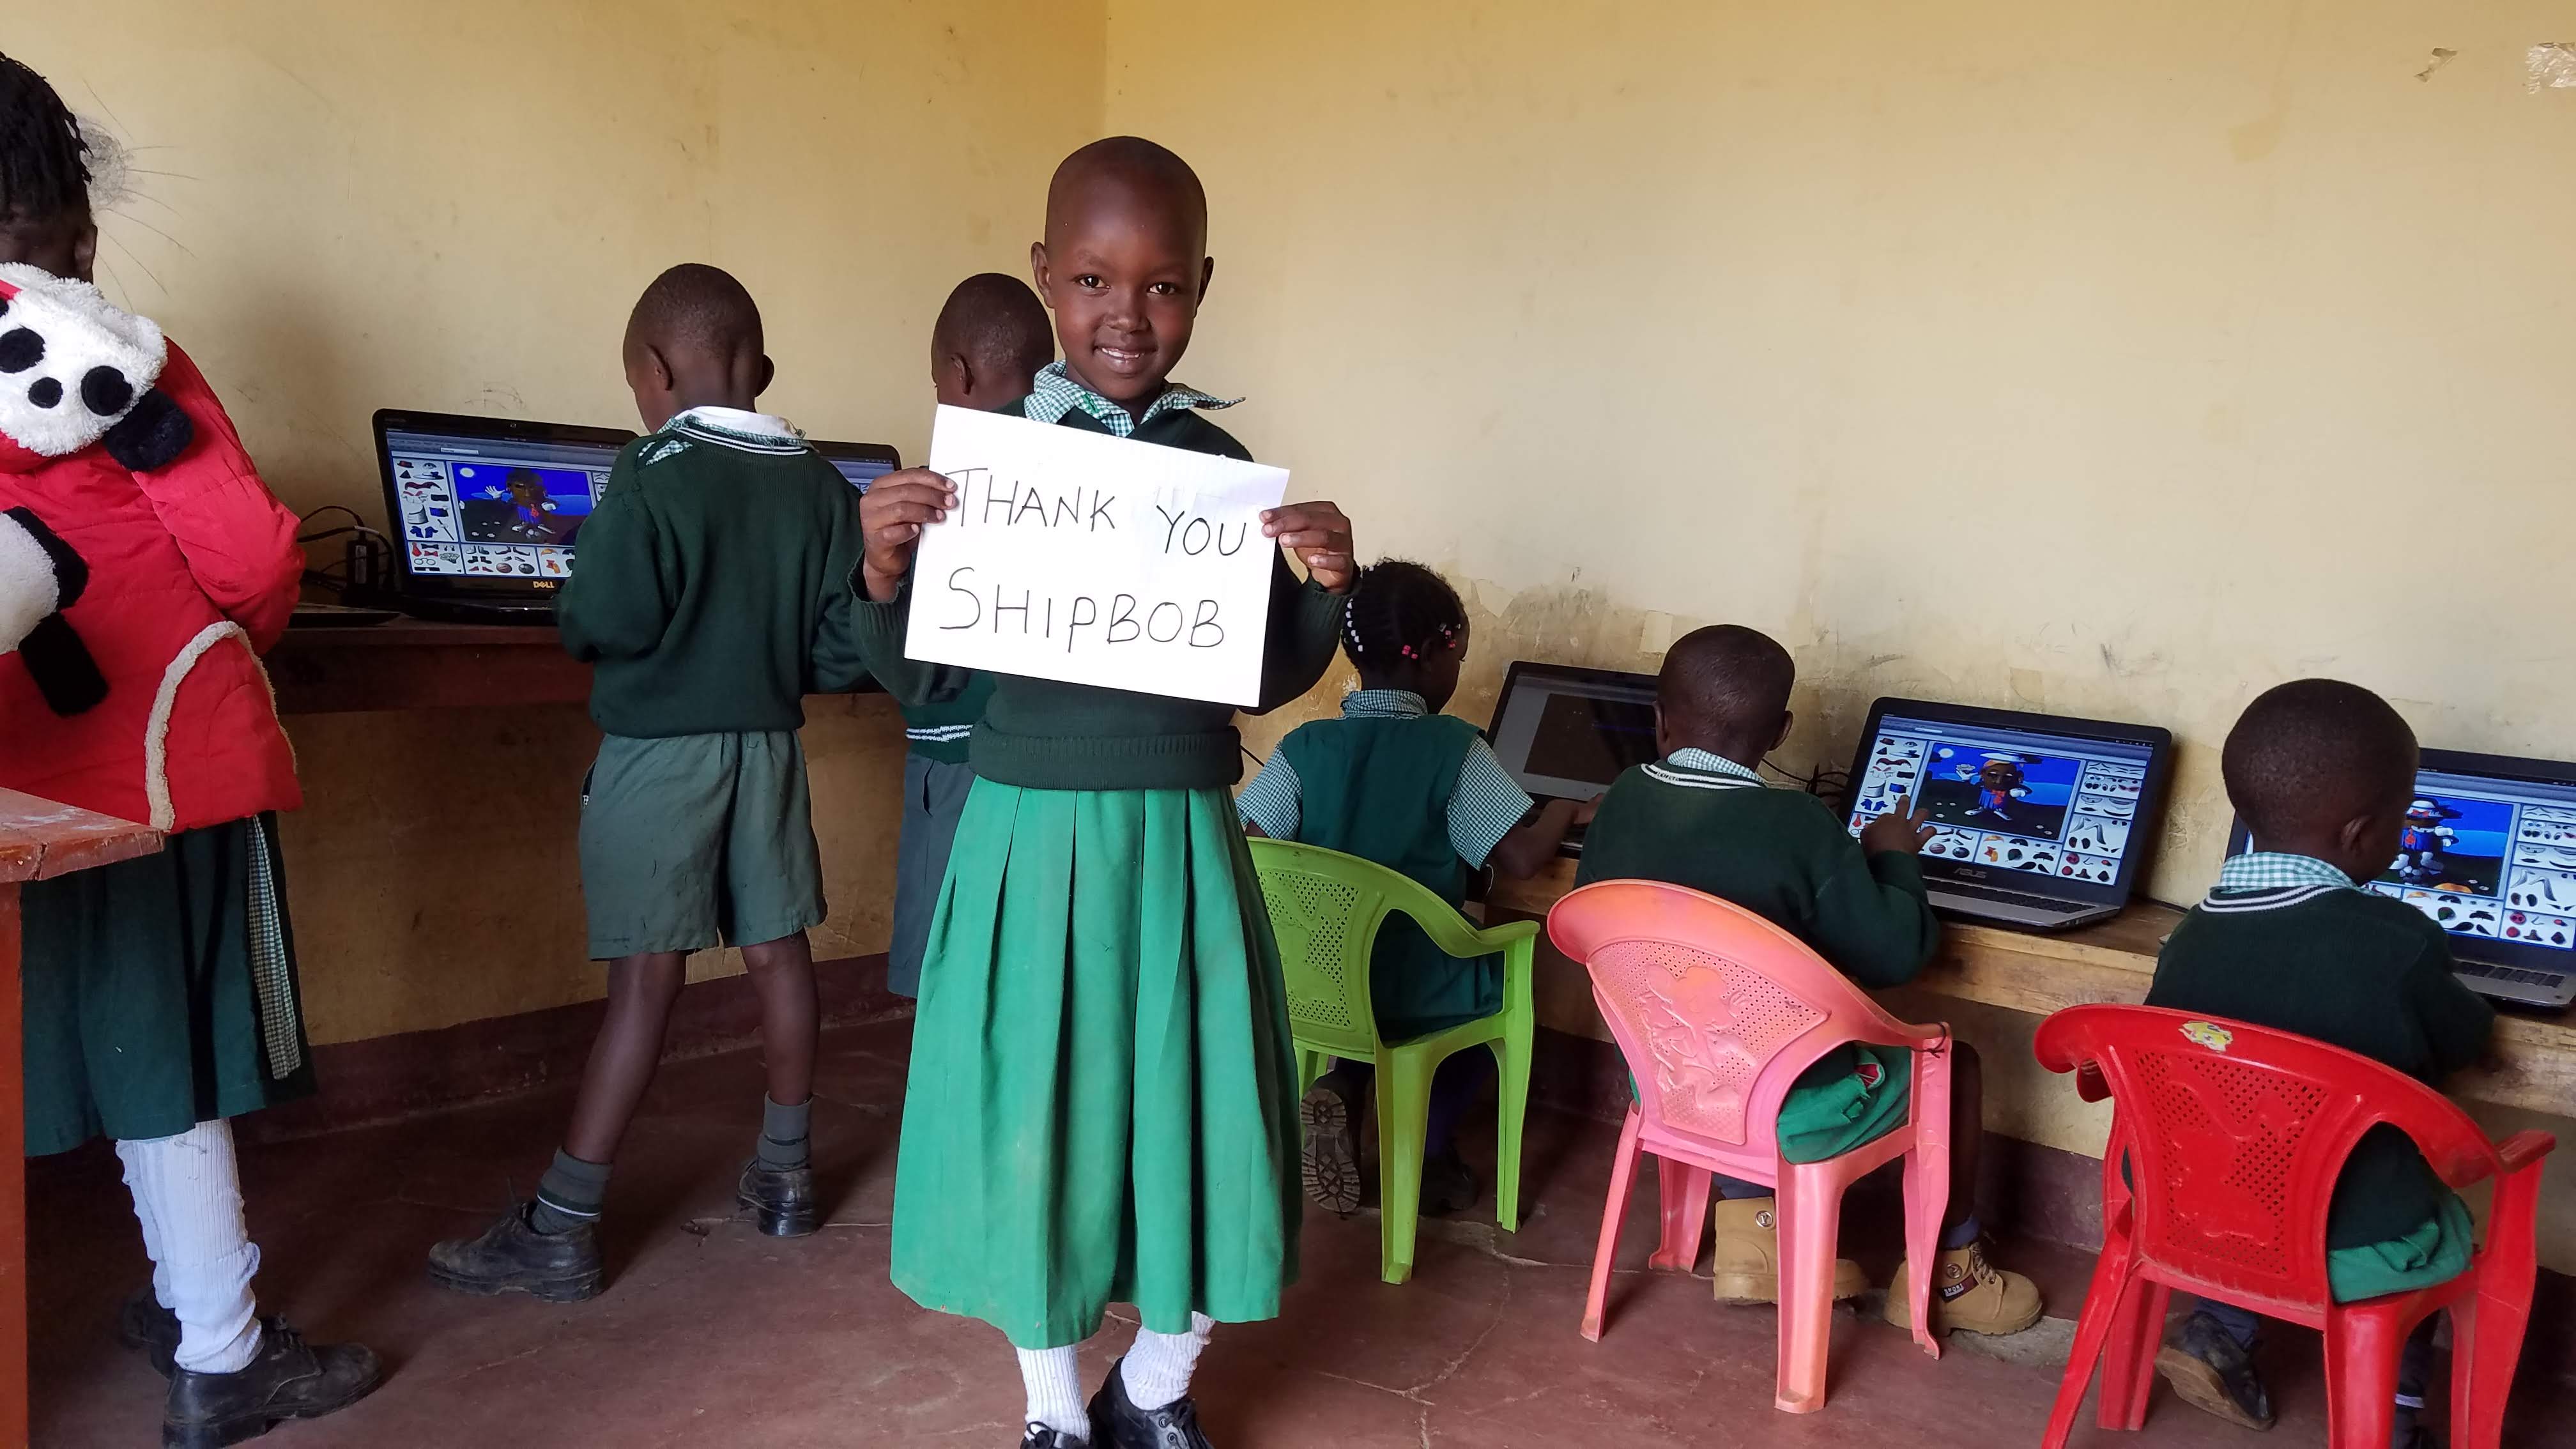 THANK YOU
SHIPBOB
DELL
ASUS